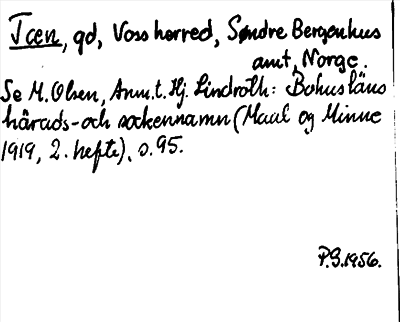 Tcen, gd, Voss herred, Søndre Bergenhus
amt, Norge.
Se M. Olsen, Anm. t. Hj. Lindroth: Bohusläns
härads- och sockennamn (Maal og Minne
1919, 2. hefte), s. 95.
P.G. 1956.